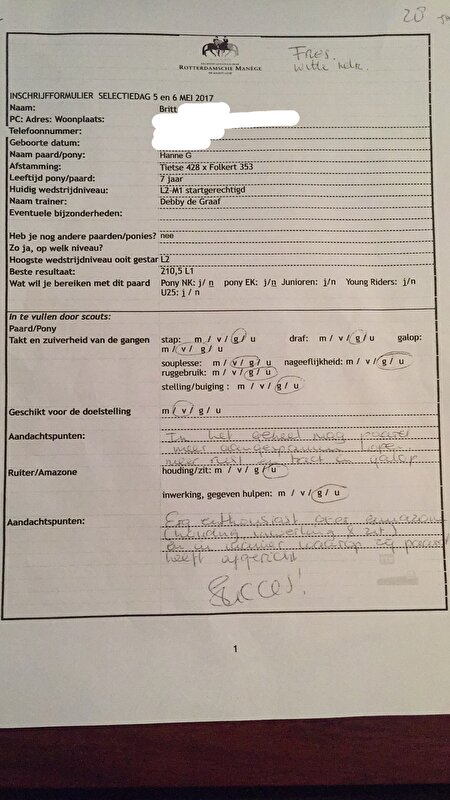 28
Fries.
witte
ROTTERDAMSCHE MANÈGE
INSCHRIJFFORMULIER SELECTIEDAG 5 en 6 MEI 2017
Naam: Britt
PC: Adres: Woonplaats:
Telefoonnummer:
Geboorte datum:
Naam paard/pony: Hanne G
Afstamming: Tietse 428 x Folkert 353
Leeftijd pony/paard: 7 jaar
Huidig wedstrijdniveau: L2-M1 startgerechtigd
Naam trainer: Debby de Graaf
Eventuele bijzonderheden:
Heb je nog andere paarden/ponies? nee
Zo ja, op welk niveau?
Hoogste wedstrijdniveau ooit gestar L2
Beste resultaat: 210,5 L1
Wat wil je bereiken met dit paard Pony NK: j/ n pony EK: j/n Junioren: j/n Young Riders: j/n
U25: j / n
In te vullen door scouts:
Paard/Pony
Takt en zuiverheid van de gangen stap: m / v / g / u draf: m / v / g / u galop:
m / v / g / u
souplesse: m / v / g / u nageeflijkheid: m / v / g / u
ruggebruik: m / v / g / u
stelling/buiging : m / v / g / u
Geschikt voor de doelstelling m / v / g / u
Aandachtspunten: In het geheel mag paard
meer aangespannen lopen
meer rust en tact in galop
Ruiter/Amazone houding/zit: m / v / g / u
inwerking, gegeven hulpen: m / v / g / u
Aandachtspunten: Erg enthousiast over amazone
(houding inwerking & zit)
en manier waarop zij paard
heeft afgericht
Succes!
1